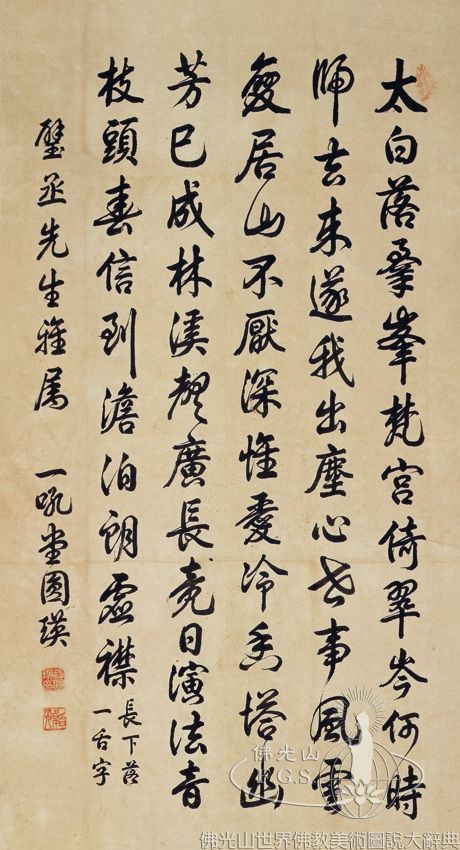 太白落羣峯梵宮倚翠岑何時
歸去來遂我出塵心世事風雲
變居山不厭深惟愛冷香塔幽
芳已成林溪聲廣長竟日演法音
枝頭春信到澹泊朗虛襟
長下落
一舌字
璧丞先生雅屬 一吼堂圓瑛
佛光山
F.G.S.
佛光山世界佛教美術圖說大辭典